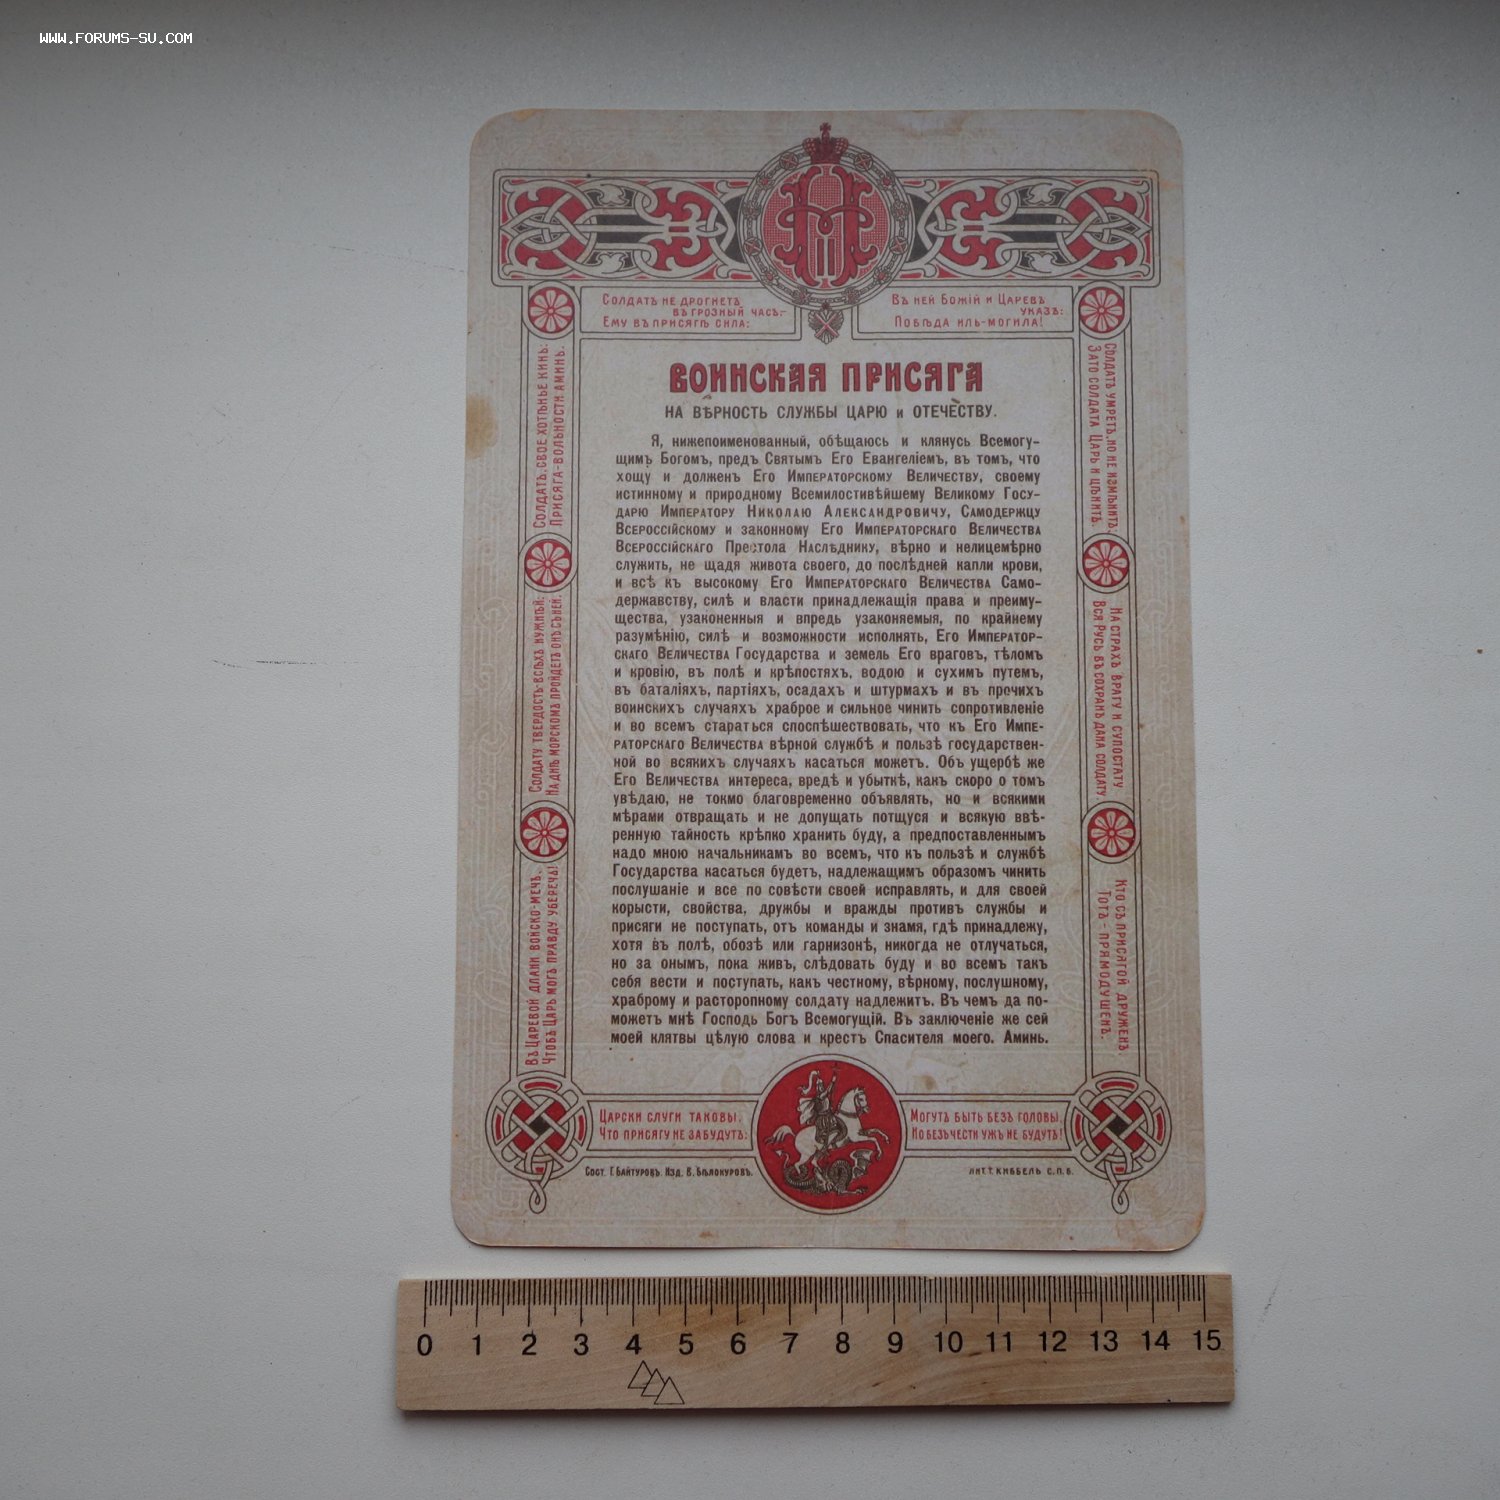 WWW.FORUMS-SU.COM
Солдатъ не дрогнетъ
въ грозный часъ:-
Ему въ присягѣ сила:
Въ ней Божій и Царевъ
указъ:
Побѣда иль-могила!
ВОИНСКАЯ ПРИСЯГА
НА ВѢРНОСТЬ СЛУЖБЫ ЦАРЮ и ОТЕЧЕСТВУ.
Я, нижепоименованный, обѣщаюсь и клянусь Всемогу-
щимъ Богомъ, предъ Святымъ Его Евангеліемъ, въ томъ, что
хощу и долженъ Его Императорскому Величеству, своему
истинному и природному Всемилостивѣйшему Великому Госу-
дарю Императору Николаю Александровичу, Самодержцу
Всероссійскому и законному Его Императорскаго Величества
Всероссійскаго Престола Наслѣднику, вѣрно и нелицемѣрно
служить, не щадя живота своего, до послѣдней капли крови,
и всѣ къ высокому Его Императорскаго Величества Само-
державству, силѣ и власти принадлежащія права и преиму-
щества, узаконенныя и впредь узаконяемыя, по крайнему
разумѣнію, силѣ и возможности исполнять, Его Император-
скаго Величества Государства и земель Его враговъ, тѣломъ
и кровію, въ полѣ и крѣпостяхъ, водою и сухимъ путемъ,
въ баталіяхъ, партіяхъ, осадахъ и штурмахъ и въ прочихъ
воинскихъ случаяхъ храброе и сильное чинить сопротивленіе
и во всемъ стараться споспѣшествовать, что къ Его Импе-
раторскаго Величества вѣрной службѣ и пользѣ государствен-
ной во всякихъ случаяхъ касаться можетъ. Объ ущербѣ же
Его Величества интереса, вредѣ и убыткѣ, какъ скоро о томъ
увѣдаю, не токмо благовременно объявлять, но и всякими
мѣрами отвращать и не допущать потщуся и всякую ввѣ-
ренную тайность крѣпко хранить буду, а предпоставленнымъ
надо мною начальникамъ во всемъ, что къ пользѣ и службѣ
Государства касаться будетъ, надлежащимъ образомъ чинить
послушаніе и все по совѣсти своей исправлять, и для своей
корысти, свойства, дружбы и вражды противъ службы и
присяги не поступать, отъ команды и знамя, гдѣ принадлежу,
хотя въ полѣ, обозѣ или гарнизонѣ, никогда не отлучаться,
но за онымъ, пока живъ, слѣдовать буду и во всемъ такъ
себя вести и поступать, какъ честному, вѣрному, послушному,
храброму и расторопному солдату надлежитъ. Въ чемъ да по-
можетъ мнѣ Господь Богъ Всемогущій. Въ заключеніе же сей
моей клятвы цѣлую слова и крестъ Спасителя моего. Аминь.
Солдатъ, свое хотѣнье кинь:
Присяга-вольности аминь.
Солдату твердость-всѣхъ нужнѣй:
На днѣ морскомъ пройдетъ онъ съ ней.
Въ Царевой длани войско-мечъ,
Чтобъ Царь могъ правду уберечь!
Солдатъ умретъ, но не измѣнитъ:
Зато солдата Царь и цѣнитъ.
На страхъ врагу и супостату
Вся Русь въ сохранъ дана солдату
Кто съ присягой друженъ,
Тотъ - прямодушенъ.
Царски слуги таковы,
Что присягу не забудутъ:
Могутъ быть безъ головы,
Но безъ чести ужъ не будутъ!
Сост. Г. Байтуровъ. Изд. В. Бѣлокуровъ.
Лит. Т. Киббель С.П.Б.
0 1 2 3 4 5 6 7 8 9 10 11 12 13 14 15